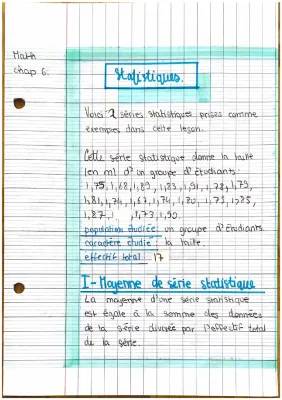 Math
chap 6.
Statistiques.
Voici 2 séries statistiques prises comme
exemples dans cette leçon.
Cette série statistique donne la taille
(en m) d'un groupe d'étudiants.
1,75, 1,68, 1,89, 1,83, 1,91, 1,78, 1,79,
1,81, 1,74, 1,67, 1,74, 1,80, 1,73, 1,85,
1,87, 1,73, 1,90.
population étudiée: un groupe d'étudiants
caractère étudié : la taille
effectif total : 17
I - Moyenne de série statistique
La moyenne d'une série statistique
est égale à la somme des données
de la série divisée par l'effectif total
de la série.